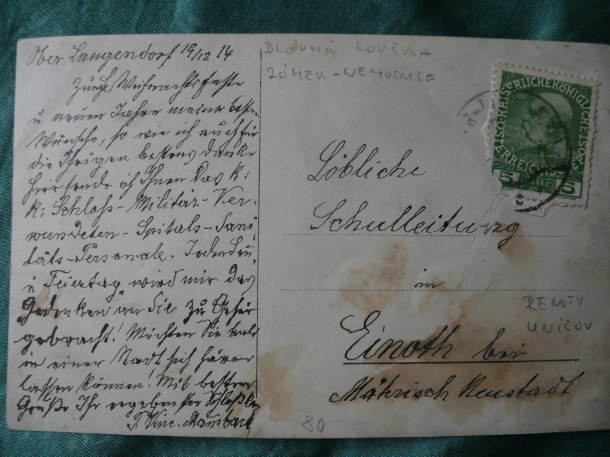 Ober Langendorf 19/12 14
Zum Weihnachtsfeste
u neuen Jahre meine besten
Wünsche, so wie ich auch für
die Ihrigen bestens danke
Hier sende ich Ihnen das k:
k: Schloss-Militär-Ver-
wundeten-Spitals-Sani-
täts-Personale.
u Feiertag wird mir das
Gedenken an Sie zu Gehör
gebracht! Möchten Sie bald
in einer Stadt sich hören
lassen können. Mit besten
Grüße Ihr ergebenster
DLOUHÁ LOUČKA
ZÁMEK-NEMOCNICE
KAISERLICHE KÖNIGLICHE
ÖSTERREICHISCHE
5 5
Löbliche
Schulleitung
in
Einoth bei
Mährisch Neustadt
RENOTY
UNIČOV
80